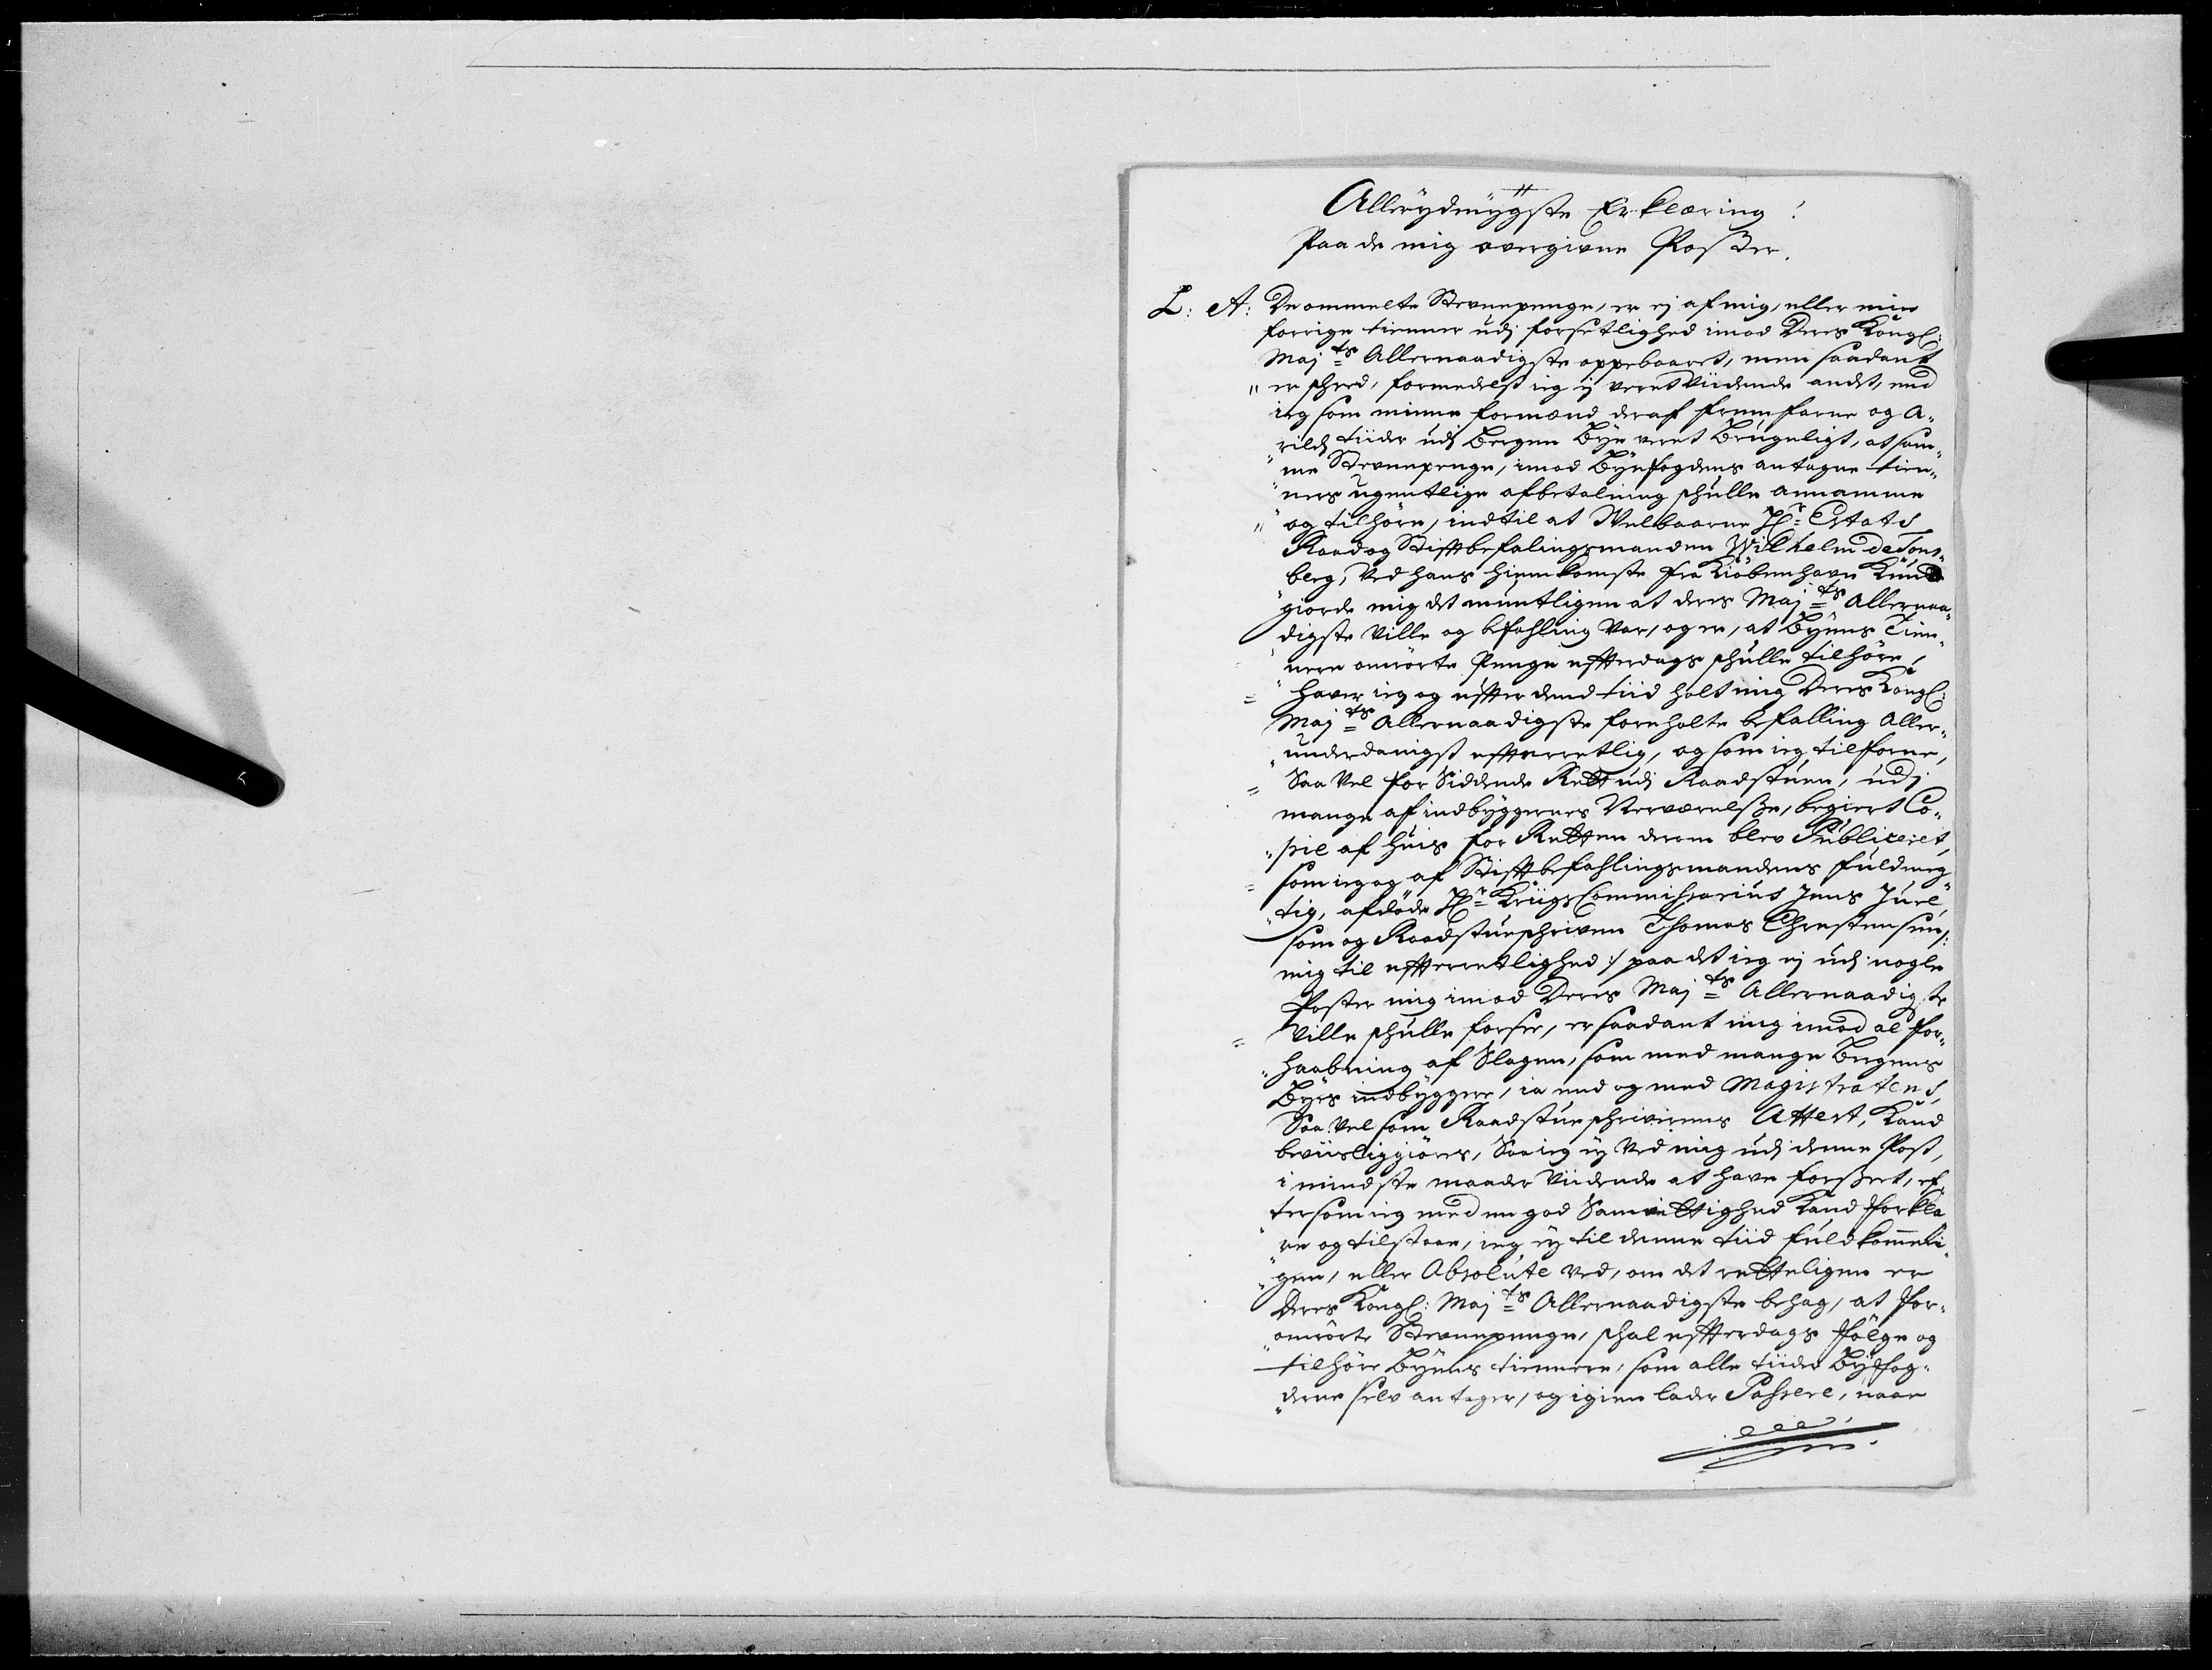 Allerydmygste Erklæring!
Paa de mig overgivne Poster.
L: A: De ommelte Stevnepenge, er ej af mig, eller min
forrige tienner udj forsetlighed imod Deres Kongl:
Maj:ts Allernaadigste oppebaaret, men saadant
er scheed, formedelst ieg ej veret viidende andet, end
ieg som minne formænd deraf fremfarne og a-
rilds tiider udj Bergen Bye veret brugeligt, at sam-
me Stevnepenge, imod Byefogdens antagne tien-
ners ugentlige afbetalning schulle annamme
og tilhøre, indtil at Welbaarne Hr: Etatz
Raad og Stiftbefalingsmanden Wilhelm de Tons-
berg, ved hans hiemkomste fra Kiøbenhavn Kund
giorde mig det mundtligen at deres Maj:ts Allernaa-
digste ville og befahling var, og er, at Byens Tien-
nere omrørte Penge effterdags schulle tilhøre,
haver ieg og effter dend tiid holt mig Deres Kongl:
Maj:ts Allernaadigste foreholte befalling Aller-
underdanigst effterretlig, og som ieg tilforne,
Saa vel for Siddende Rett udj Raadstuen, udj
mange af indbyggernes Nerværelsse, begiert Co-
pie af huis for Retten derom blev Publiceret,
som ieg og af Stiftbefahlingsmandens fuldmeg-
tig, afdøde Hr: KriigsCommissarius Jens Juel,
som og Raadstueschriven Thomas Christensen /:
mig til effterretlighed :/ paa det ieg ej udj nogle
Poster mig imod Deres Maj:ts Allernaadigste
Ville schulle forsee, er saadant mig imod al for-
haabning af Slagen, som med mange Bergens
Byes indbyggere, ia end og med Magistratens,
Saa vel som Raadstueschriverens Attest, Kand
beviisliggiøres, Saa ieg ej ved mig udj denne Post,
i mindste maader viidende at have forsseet, ef-
tersom ieg med en god Samvittighed Kand forkla
re og tilstaae, ieg ej til denne tiid fuldkommeli-
gen, eller Absolute ved, om det retteligen er
Deres Kongl: Maj:ts Allernaadigste behag, at for-
omrørte Stevnepenge, schal effterdags følge og
tilhøre Byens tiennere, som alle tiider Byefog-
derne selv antager, og igien lader Passere, naar